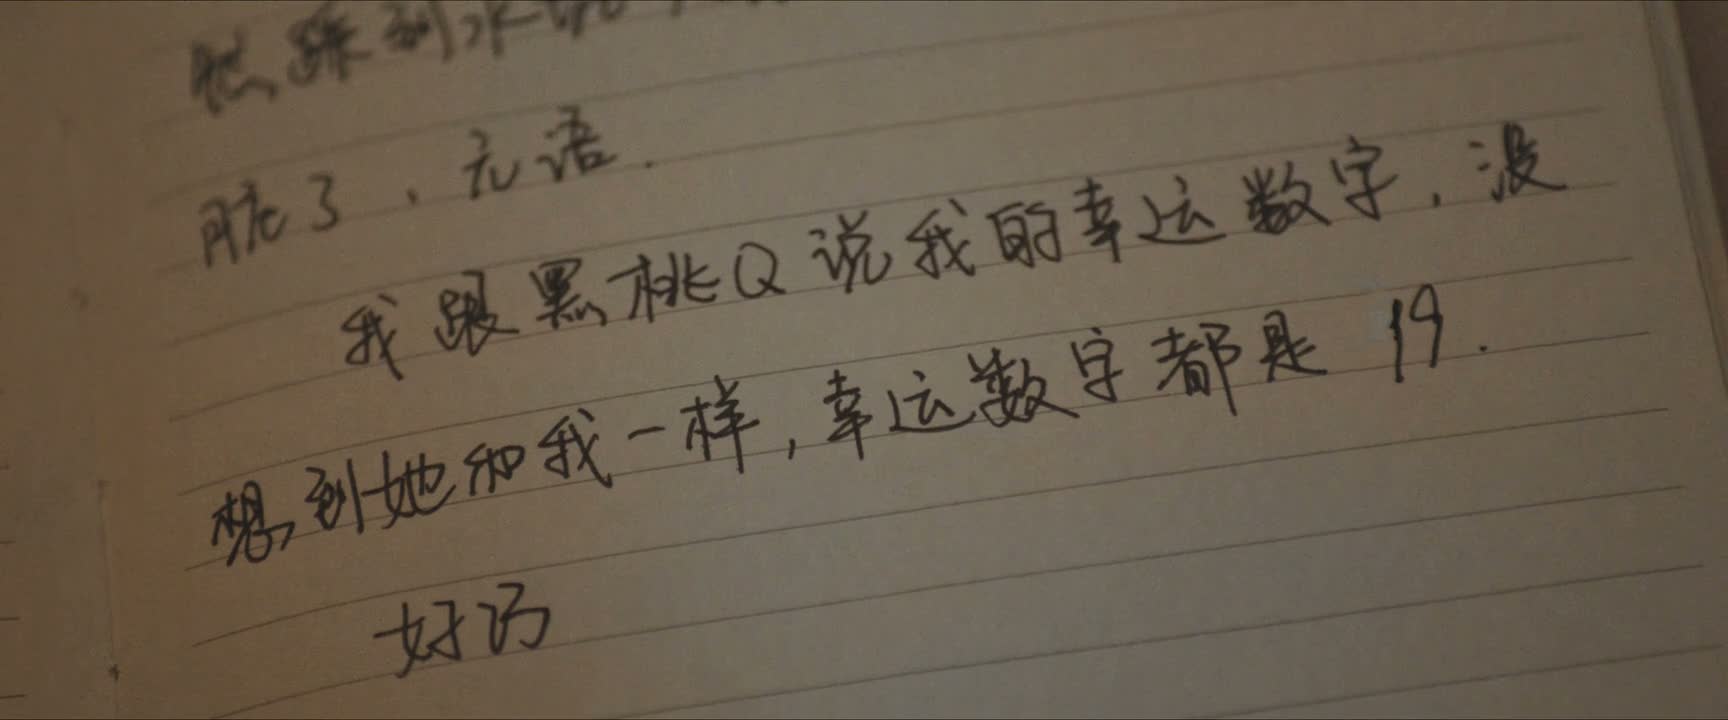 然踩到水
脏了，无语.
我跟黑桃Q说我的幸运数字，没
想到她和我一样，幸运数字都是 19.
好巧